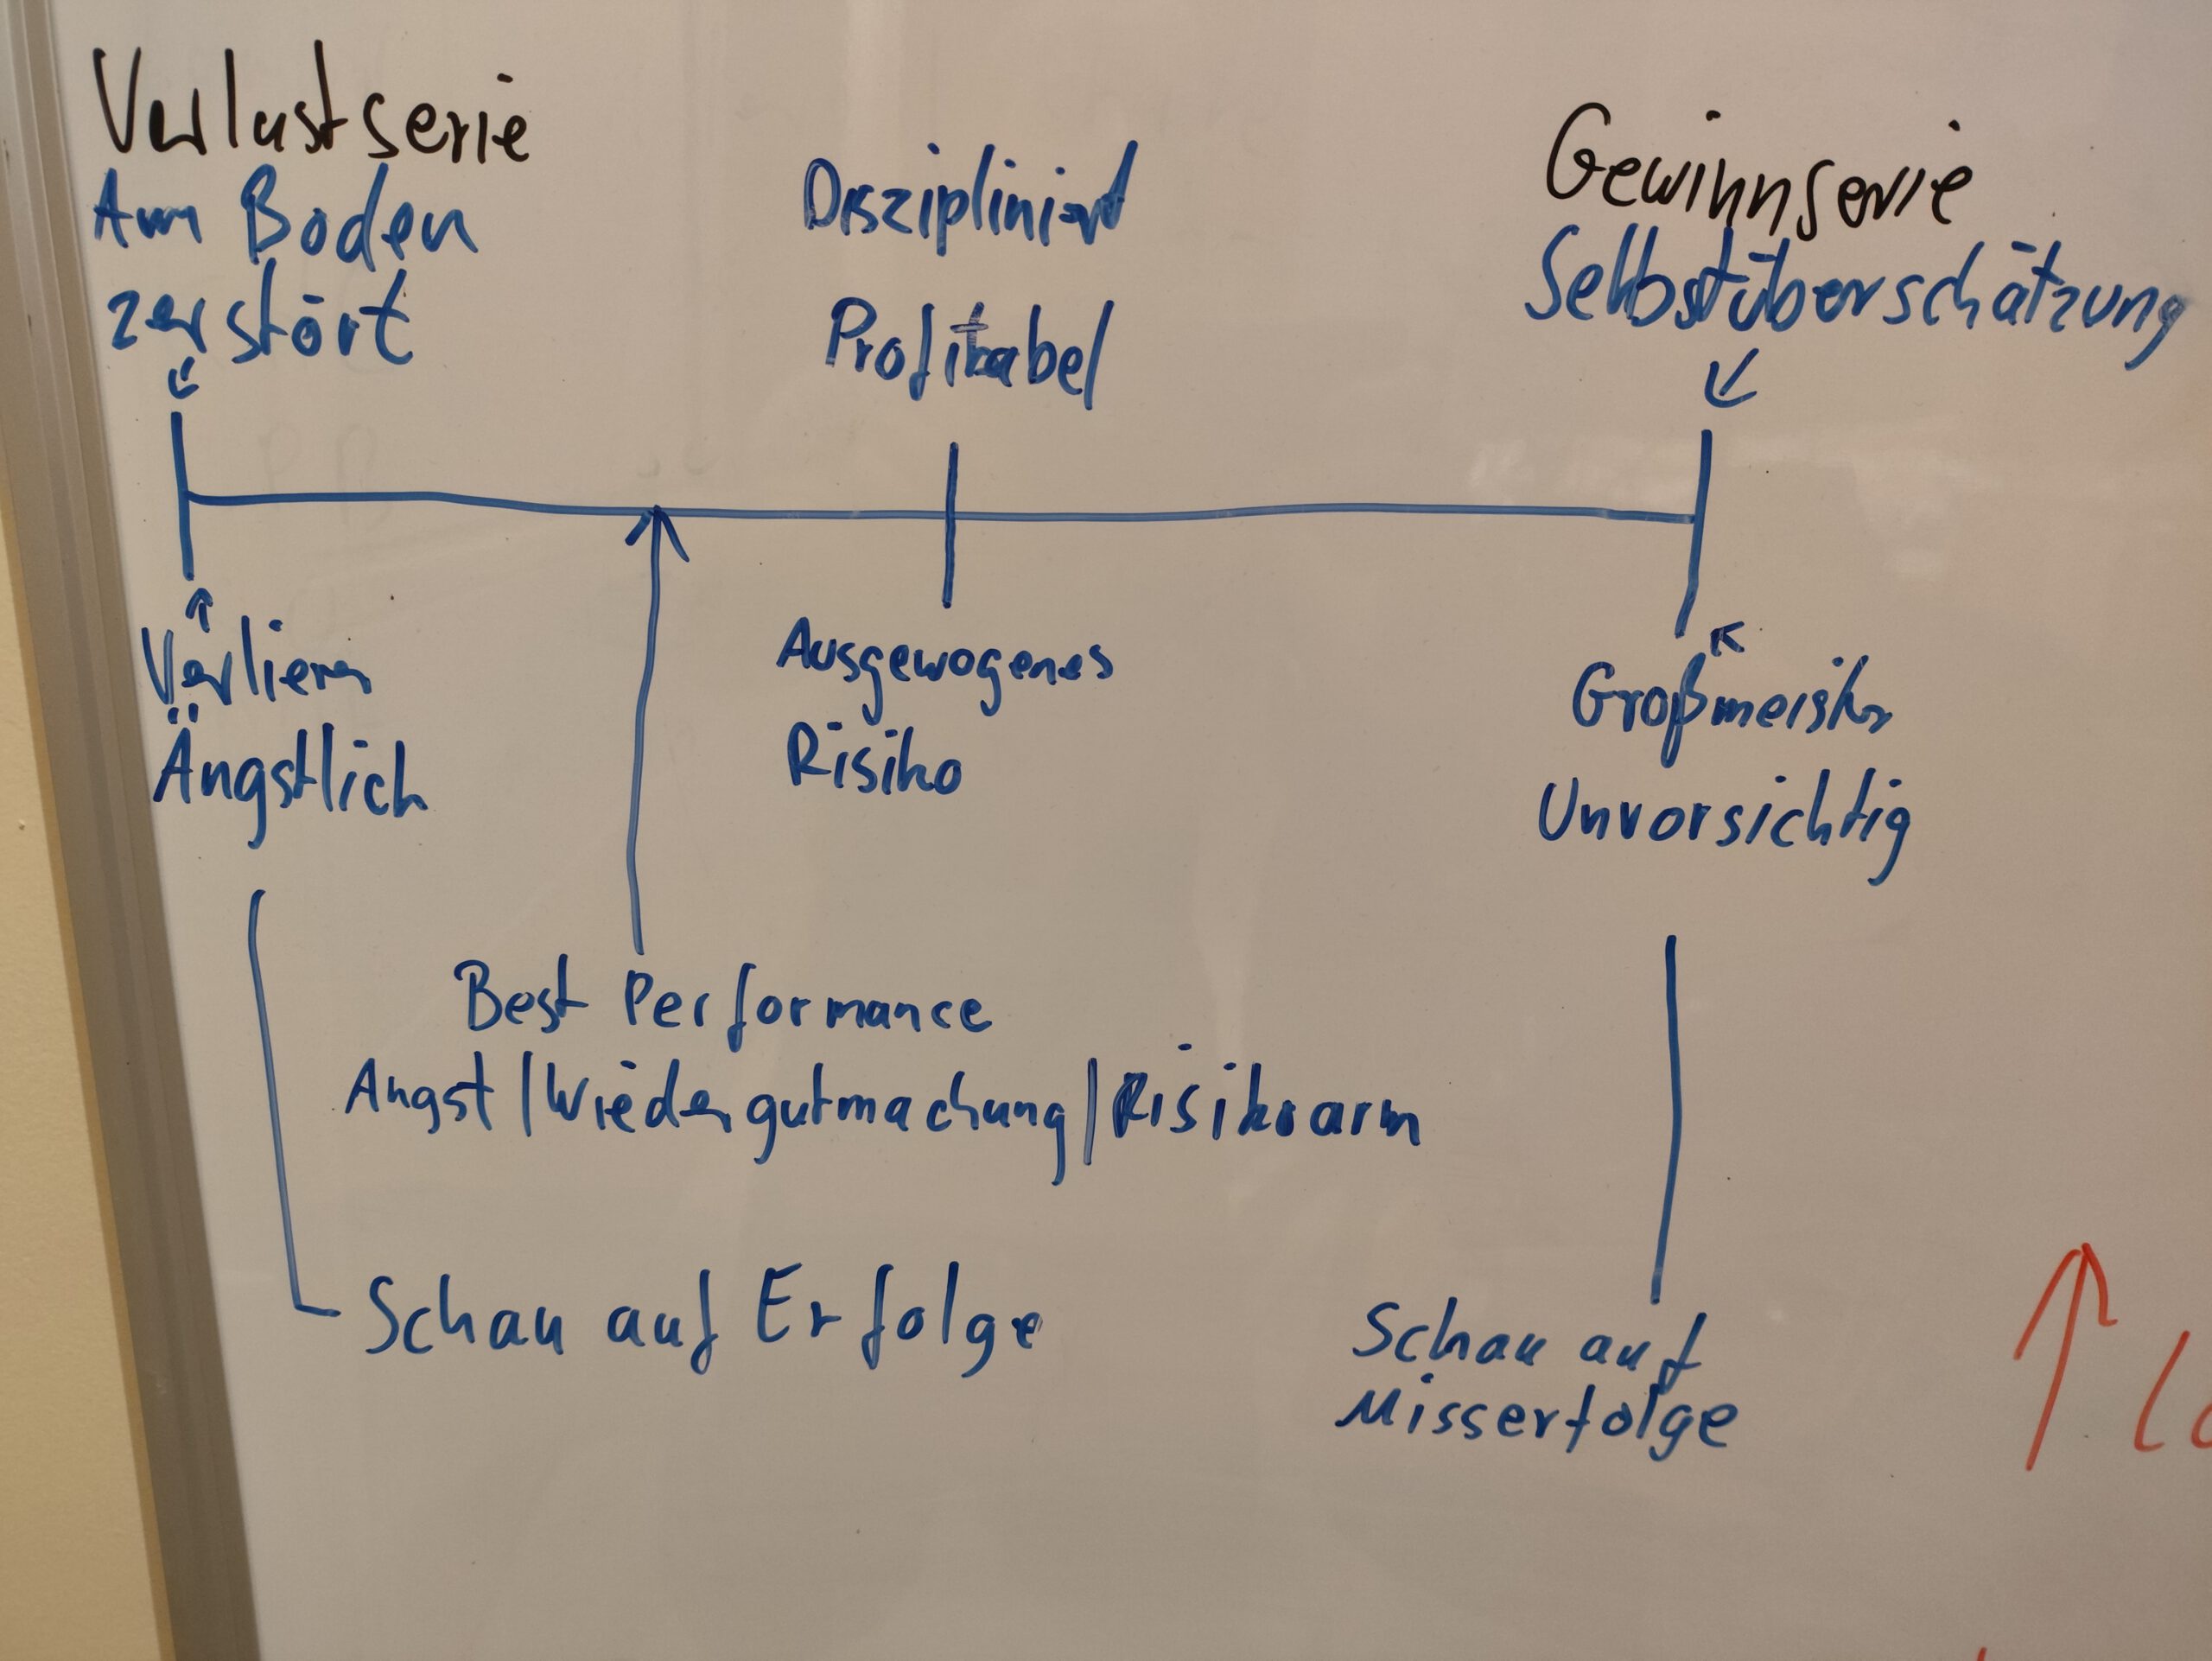 Verlustserie
Am Boden
zerstört
Diszipliniert
Profitabel
Gewinnserie
Selbstüberschätzung
Verlierer
Ängstlich
Ausgewogenes
Risiko
Großmeister
Unvorsichtig
Best Performance
Angst/Wiedergutmachung/Risikoarm
Schau auf Erfolge
Schau auf
Misserfolge